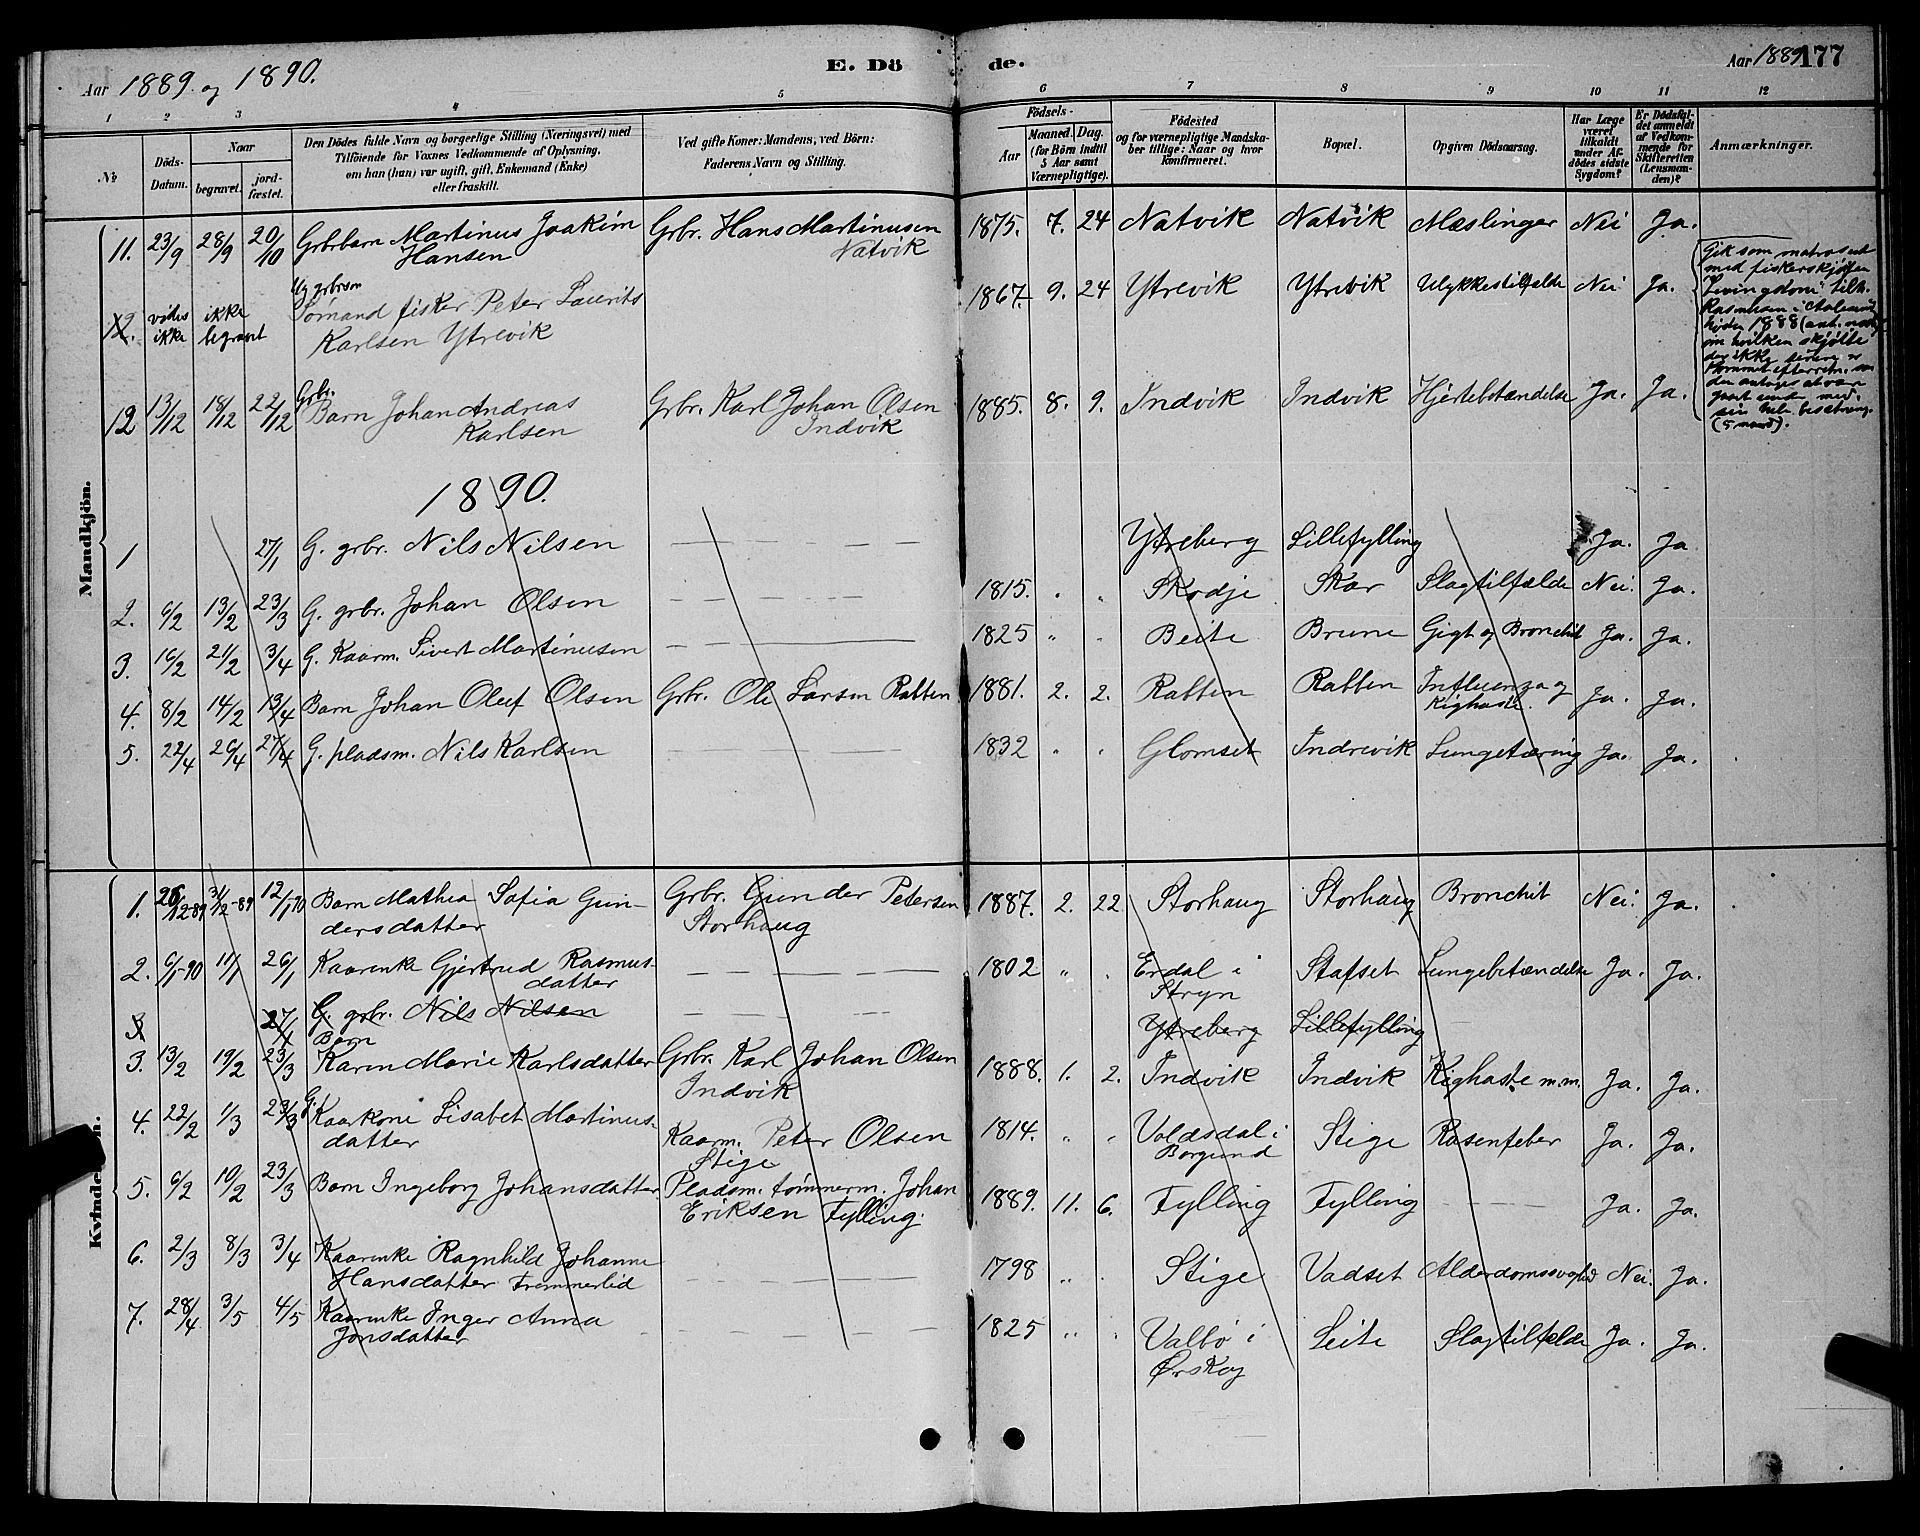 Aar 1889 og 1890.
E. Dö
de.
Aar 1889
177
1 2 3 4 5 6 7 8 9 10 11 12
№
Döds-
Datum.
Naar
begravet.
jord-
fæstet.
Den Dödes fulde Navn og borgerlige Stilling (Næringsvei) med
Tilföiende for Voxnes Vedkommende af Oplysning,
om han (hun) var ugift, gift, Enkemand (Enke)
eller fraskilt.
Ved gifte Koner: Mandens, ved Börn:
Faderens Navn og Stilling.
Födsels-
Aar
Maaned. Dag.
(for Börn indtil
5 Aar samt
Værnepligtige).
Födested
og for værnepligtige Mandska-
ber tillige: Naar og hvor
konfirmeret.
Bopæl.
Opgiven Dödsaarsag.
Har Læge
været
tilkaldt
under Af-
dödes sidste
Sygdom?
Er Dödsfal-
det anmeldt
af Vedkom-
mende for
Skifteretten
(Lensman-
den)?
Anmærkninger.
Mandkjön.
11. 23/9 28/9 20/10 Grbrbarn Martinus Joakim Grbr. Hans Martinusen 1875. 7. 24 Natvik Natvik Mæslinger Nei Ja.
Hansen Natvik
Ug grbrsøn
12. vides ikke Sømand fisker Peter Laurits 1867. 9. 24 Ytrevik Ytrevik Ulykkestilfælde Nei Ja.
ikke begravet Karlsen Ytrevik
Gik som matros ud
med fiskerskjøiten
1888
om hvilken skjøite
(5 mand).
Grbr.
12 13/12 18/12 22/12 Barn Johan Andreas Grbr. Karl Johan Olsen 1885. 8. 9. Indvik Indvik Hjertebetændelse Ja. Ja.
Karlsen Indvik
1890.
1 27/1 G. grbr. Nils Nilsen — — — — Ytreberg Lillefylling Ja. Ja
2. 6/2 13/2 23/3 G. grbr. Johan Olsen — — — — 1815. " " Skodje Skar Slagtilfælde Nei. Ja.
3. 16/2 21/2 3/4 G. Kaarm. Sivert Martinusen — — — 1825 " " Beite Brune Gigt og Bronchit Ja. Ja.
4. 8/2 14/2 13/4 Barn Johan Oluf Olsen Grbr. Ole Larsen Ratten 1881. 2. 2. Ratten Ratten Influenza og Ja. Ja.
Kighoste.
5. 22/4 26/4 27/4 G. pladsm. Nils Karlsen — — — 1832 " " Glomset Indrevik Lungetæring Ja. Ja.
Kvindekjön.
1. 26/12-89 31/12-89 12/1 90 Barn Mathea Sofia Gun- Grbr. Gunder Petersen 1887. 2. 22 Storhaug Storhaug Bronchit Nei. Ja.
dersdatter Storhaug
2. 6/1-90 11/1 26/1 Kaarenke Gjertrud Rasmus- — — — 1802 " " Erdal i Stafset Lungebetændelse Ja. Ja.
datter Stryn
3 27/1 G. grbr. Nils Nilsen — — — Ytreberg Lillefylling
Barn
3. 13/2 19/2 23/3 Karen Marie Karlsdatter Grbr. Karl Johan Olsen 1888. 1. 2. Indvik Indvik Kighoste m.m. Ja. Ja.
Indvik
4. 22/2 1/3 23/3 G. Kaarkone Lisabet Martinus- Kaarm. Peter Olsen 1814. " " Voldsdal i Stige Rosenfeber Ja. Ja.
datter Stige Borgund
5. 6/2 10/2 23/3 Barn Ingeborg Johansdatter Pladsm. tømmerm. Johan 1889. 11. 6. Fylling Fylling — — — Ja. Ja.
Eriksen Fylling.
6. 2/3 8/3 3/4 Kaarenke Ragnhild Johanne — — — 1798 " " Stige Vadset Alderdomssvaghed Nei. Ja.
Hansdatter Fremmerlid
7. 28/4 3/5 4/5 Kaarenke Inger Anna — — — 1825 " " Valbø i Leite Slagtilfælde Ja. Ja.
Jonsdatter Ørskog